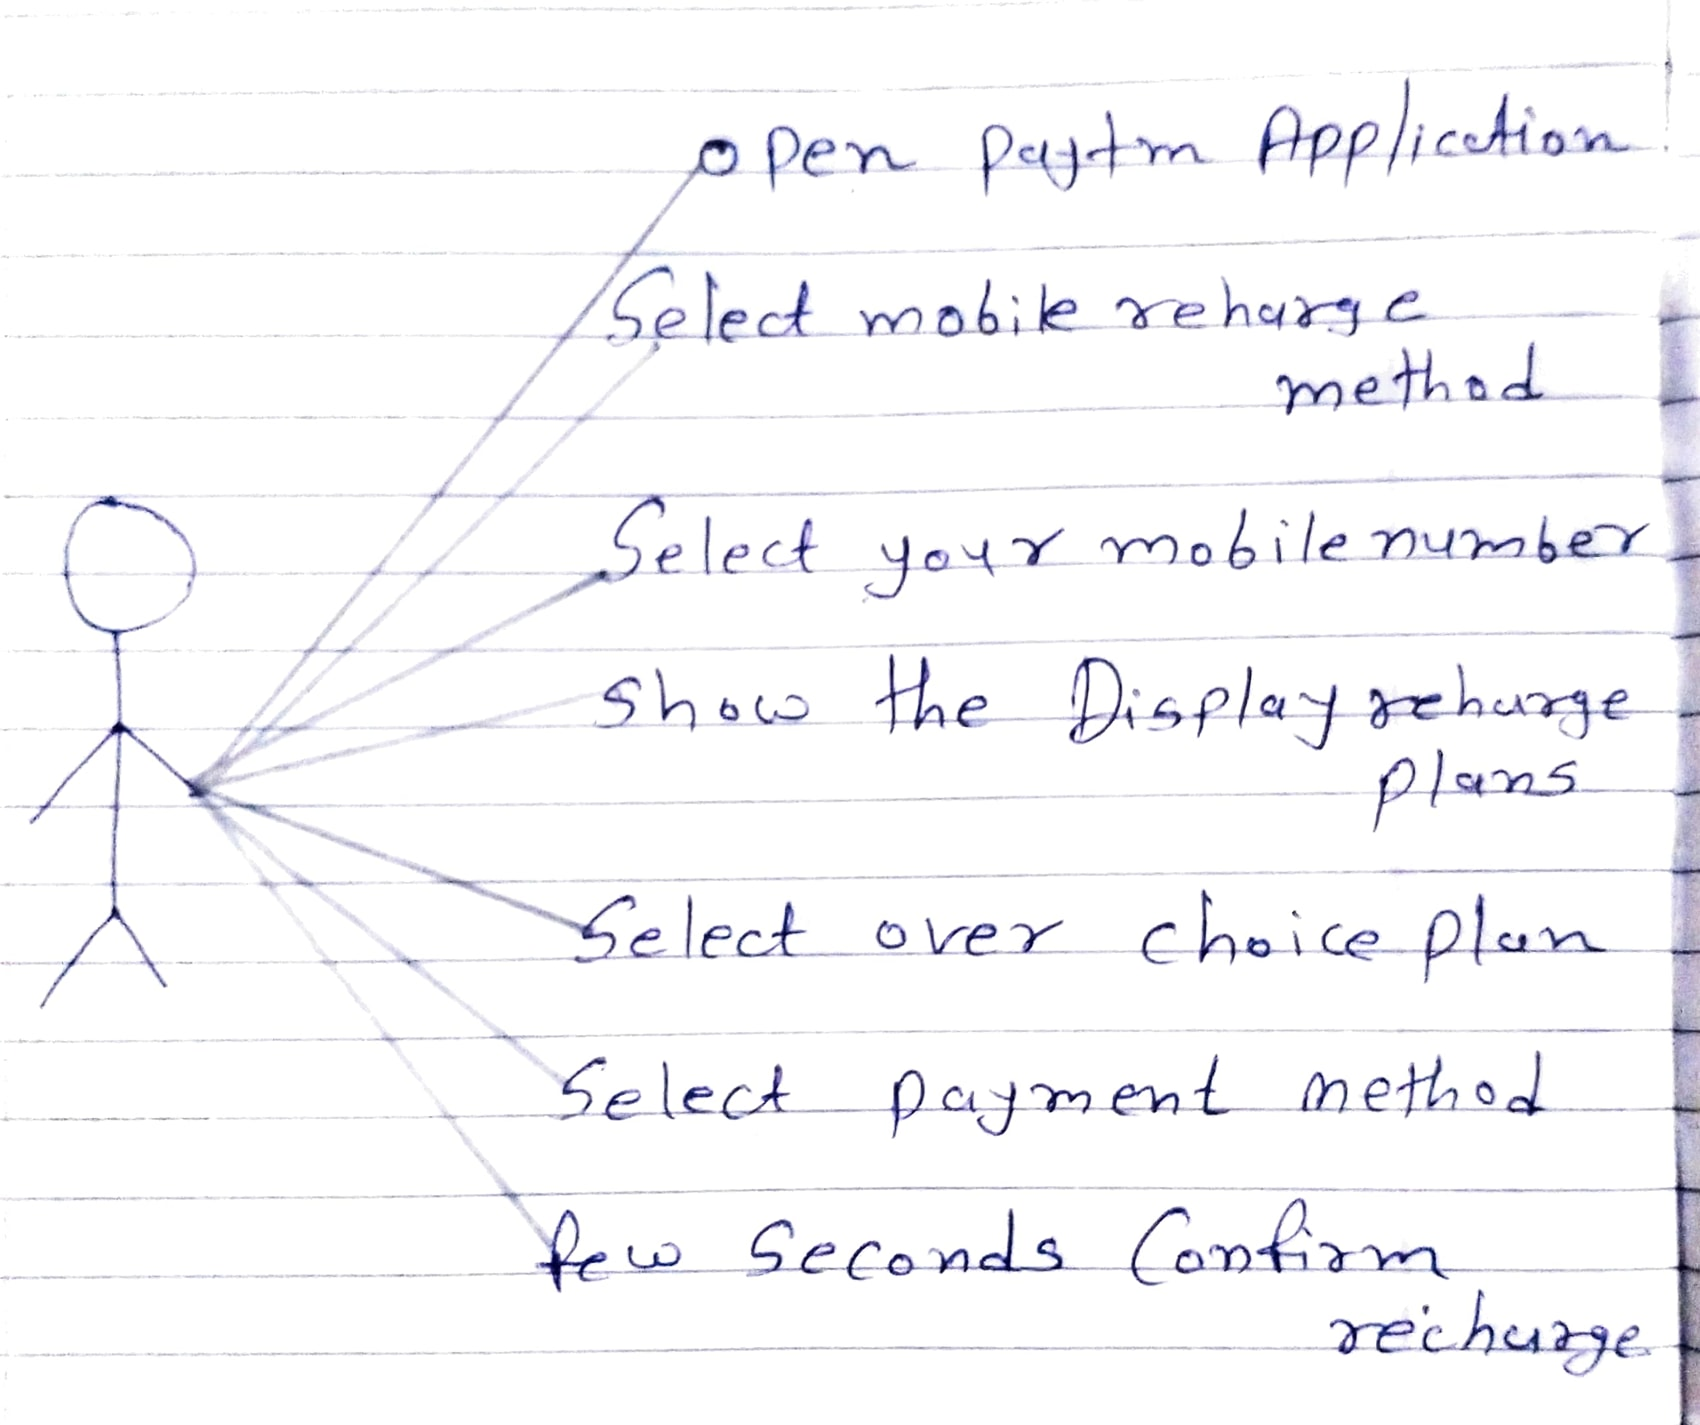 Open paytm Application
Select mobile reharge
method
Select your mobile number
Show the Display reharge
plans
Select over choice plan
Select payment method
few Seconds Confirm
recharge